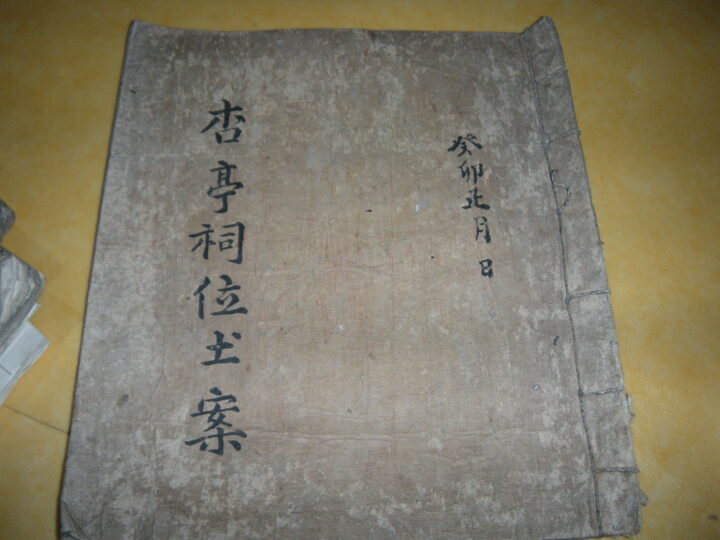 癸卯正月 日
杏亭祠位土案